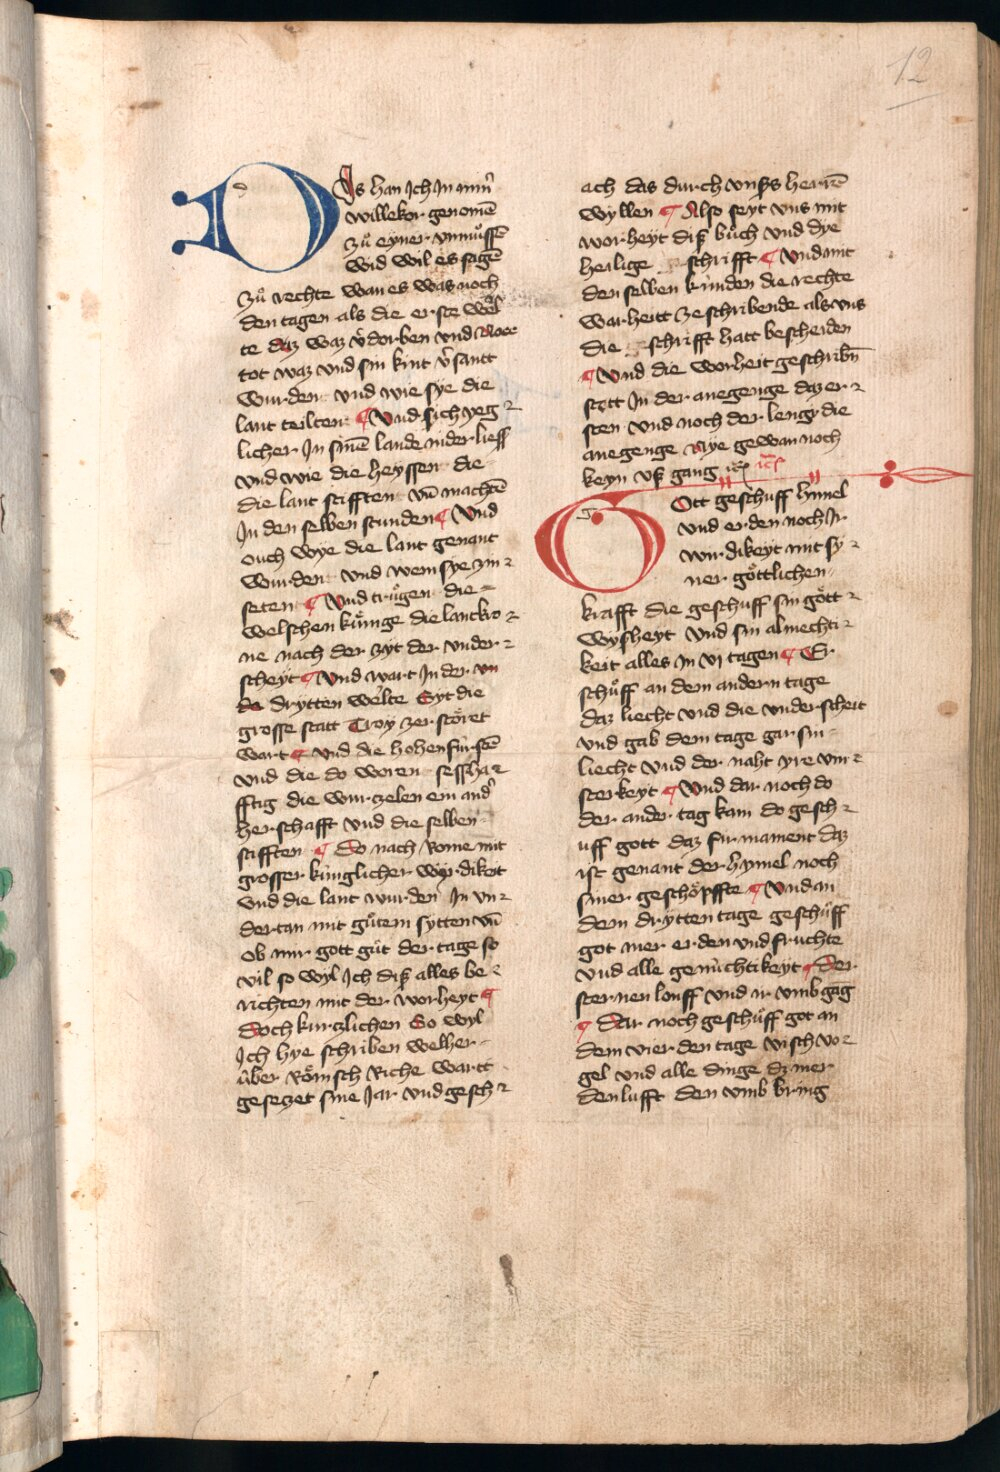 12
DIs han Ich In minr̄
willekor genomē
zuͦ eyner vnmuͦssē
Wid wil es sagē
zuͦ rechte wan es was noch
den tagen als die erste wel
te daz waz v̄dorben und Noee
tot waz und sin kint v̄santt
wurden und wie sye die
lant teilten ¶ Und sich yeg
licher In sinē lande nider lieſſ
und wie die heyſſen die
die lant stifften vn̄ machtē
In den selben stunden ¶ Und
ouch wye die lant genant
wurden und wem sye zin
seten ¶ Und truͤgen die
welschen kuͤnige die lantkro
ne nach der zyt der under
scheyt ¶ Und wart In der un
da drytten welte Syt die
grosse statt Troy zer stoͤret
wart ¶ und die hohen fürstē
und die do woren sesſha
fftig die wurzelen ein and̄
her schafft und die selben
stifften ¶ Do nach Rome mit
grosser künglicher wirdikeit
Und die lant wurden In un
dertan mit guͦtem sytten vn̄
ob mir gott güt der tage so
vil so wyl Ich diß alles be
richten mit der worheyt ¶
Doch kurzlichen So wyl
Ich hye schriben welher
über Roͤmsch Riche wartt
gesezet sine Jar und gesch
ach das durch unßs herrē
wyllen ¶ Also seyt uns mit
worheyt diß buͦch und dye
heilige schrifft ¶ Und mit
den selben kunden die rechte
warheitt ze schribende als uns
die schrifft hatt bescheiden
¶ Und die worheit geschribn̄
stett In der anegenge daz er
sten und noch der lengy die
anegenge nye gewan noch
keyn uß gang
GOtt geschuff hymel
und erden noch Ir
wirdikeyt mit sy
ner goͤttlichen
krafft die geschuff sin goͤtt
wysheyt und sin almechti
keit alles in vi tagen ¶ Er
schuͤff an dem andern tage
daz liecht und die underscheit
und gab dem tage gar sin
liecht und der naht yre vin
sterkeyt ¶ Und dar noch do
der ander tag kam do gesch
uff gott daz firmament daz
ist genant der hymel noch
siner geschoͤpffte ¶ Und an
dem drytten tage geschuͤff
got mer erden und fruchte
und alle genuchtikeyt ¶ Der
sternen louff und ir umb gag
¶ Dar noch geschuͤff got an
dem vierden tage visch vo
gel und alle dinge dz mer
den lufft den umb bring